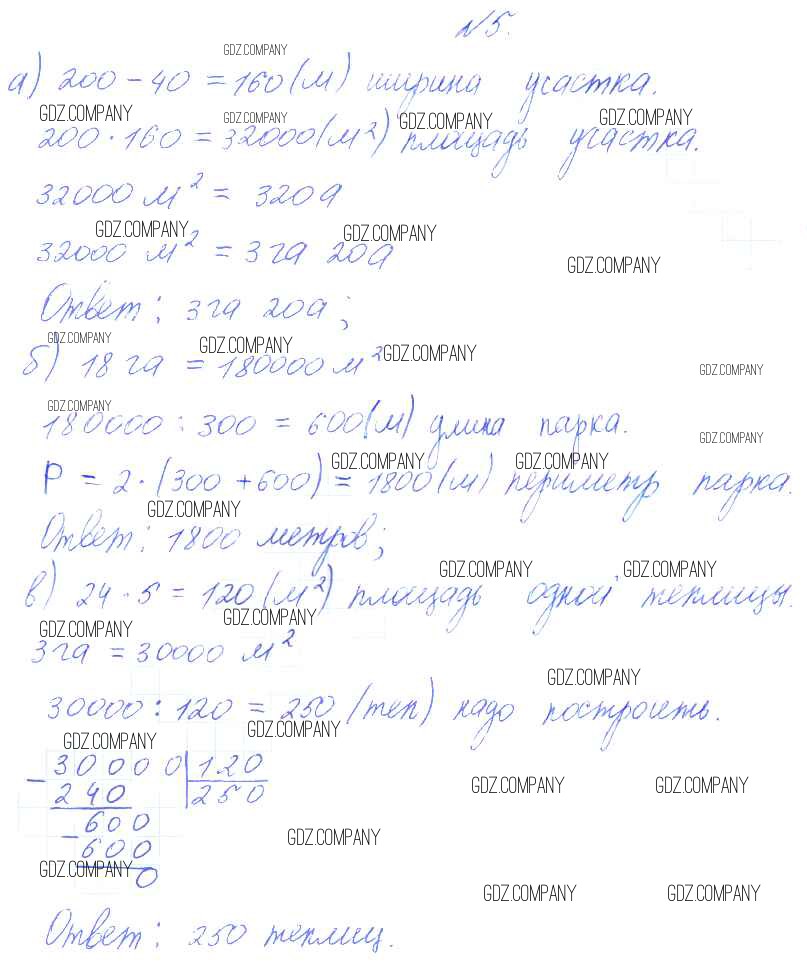 №5.
GDZ.COMPANY
а) 200 - 40 = 160 (м) ширина участка.
GDZ.COMPANY GDZ.COMPANY GDZ.COMPANY GDZ.COMPANY
200 · 160 = 32000 (м²) площадь участка.
32000 м² = 320а
GDZ.COMPANY GDZ.COMPANY
32000 м² = 3га 20а
GDZ.COMPANY
Ответ: 3га 20а;
GDZ.COMPANY GDZ.COMPANY GDZ.COMPANY
б) 18 га = 180000 м²
GDZ.COMPANY
GDZ.COMPANY
180000 : 300 = 600 (м) длина парка.
GDZ.COMPANY
GDZ.COMPANY GDZ.COMPANY
P = 2 · (300 + 600) = 1800 (м) периметр парка.
GDZ.COMPANY
Ответ: 1800 метров;
GDZ.COMPANY GDZ.COMPANY
в) 24 · 5 = 120 (м²) площадь одной теплицы.
GDZ.COMPANY GDZ.COMPANY
3га = 30000 м²
GDZ.COMPANY
30000 : 120 = 250 (теп) надо построить.
GDZ.COMPANY GDZ.COMPANY
- 30000 | 120
240 250
GDZ.COMPANY GDZ.COMPANY
- 600
GDZ.COMPANY
600
GDZ.COMPANY
0
GDZ.COMPANY GDZ.COMPANY
Ответ: 250 теплиц.